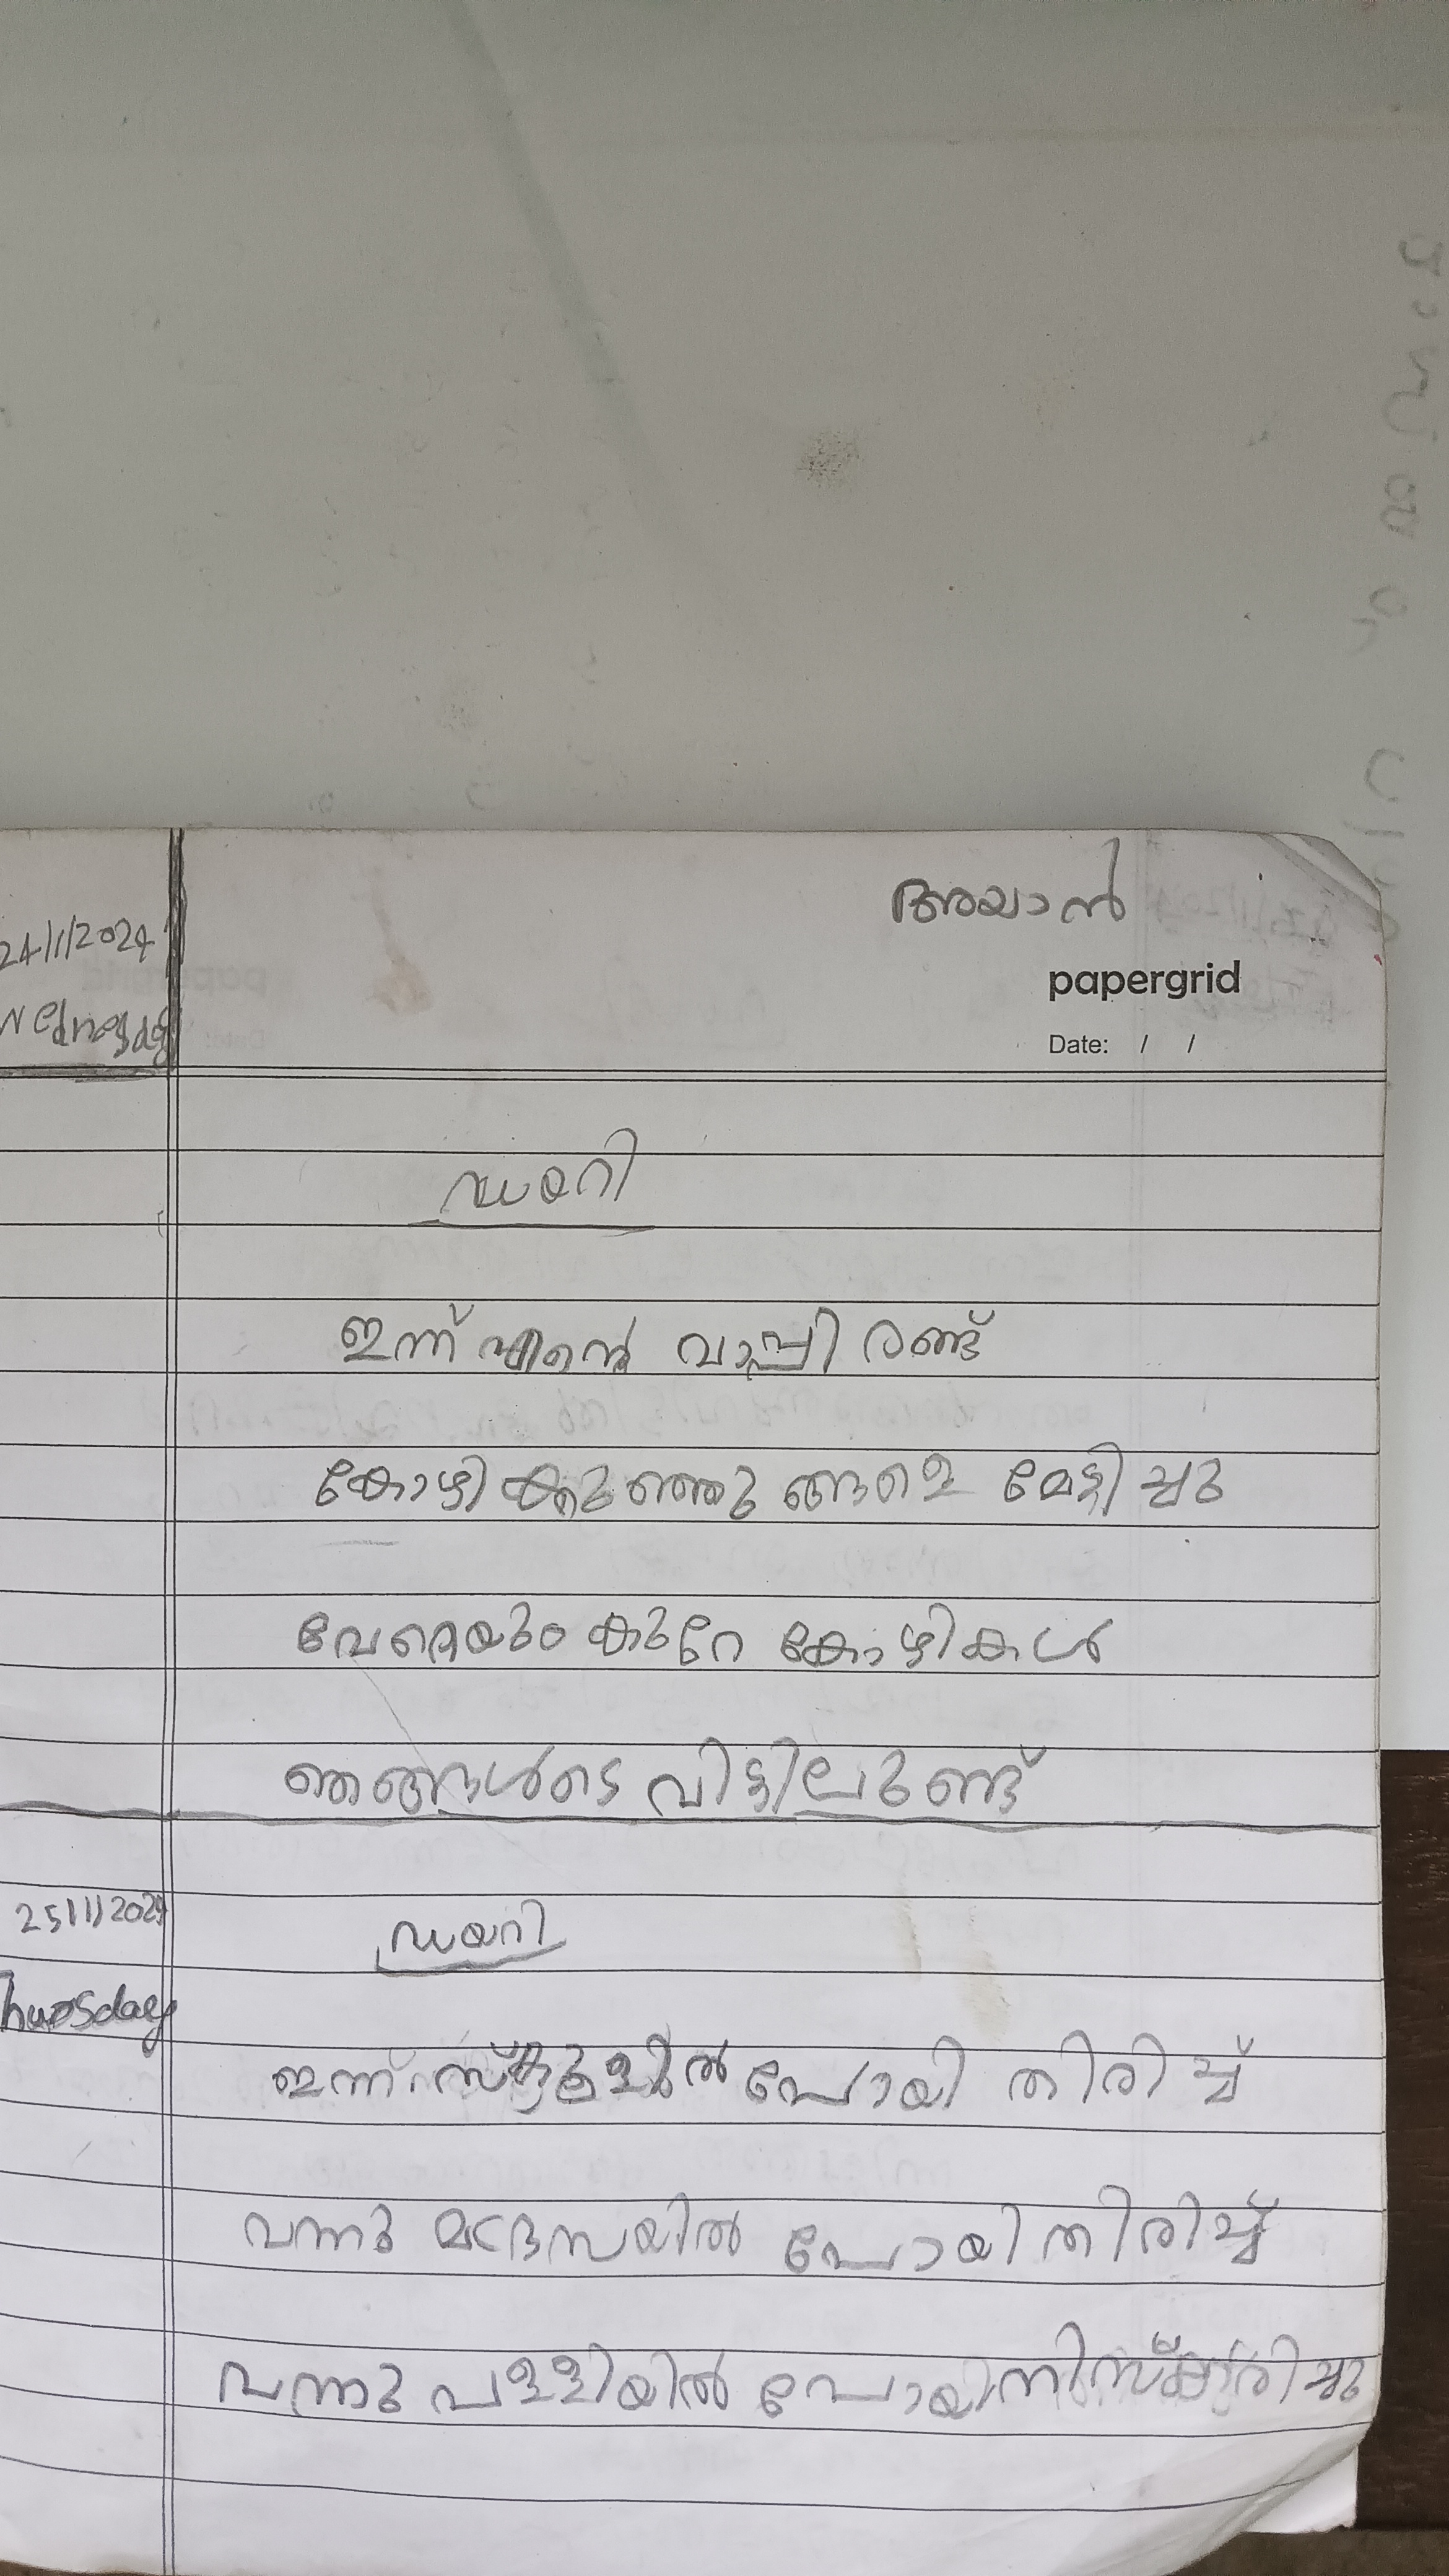 അയാൻ
papergrid
Date: / /
24/1/2024
Wednesday
ഡയറി
ഇന്ന് എന്റെ വാപ്പി രണ്ട്
കോഴി ക്കുഞ്ഞു ങ്ങളെ മേടിച്ചു
വേറെയും കുറേ കോഴികൾ
ഞങ്ങൾടെ വീട്ടിലുണ്ട്
25/1/2024
ഡയറി
hursday
ഇന്ന് സ്കൂളിൽ പോയി തിരിച്ച്
വന്നു മദ്രസയിൽ പോയി തിരിച്ച്
വന്നു പള്ളിയിൽ പോയി നിസ്കരിച്ചു